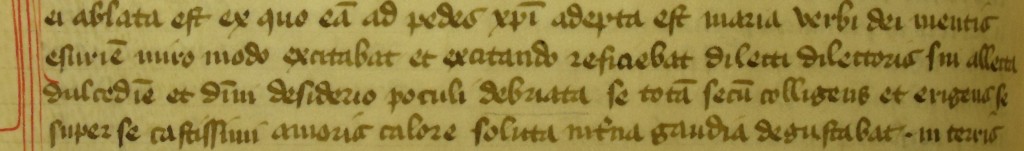 ei ablata est ex quo eā ad pedes xp̄i adepta est maria verbi dei mentis
esuriē miro modo excitabat et excitando reficiebat dilecti dilectoris sui allecta
dulcedīe et dīni desiderio poculi debriata se totā secū colligens et erigens se
super se castissimi amoris calore soluta int̄na gaudia degustabat · in terris